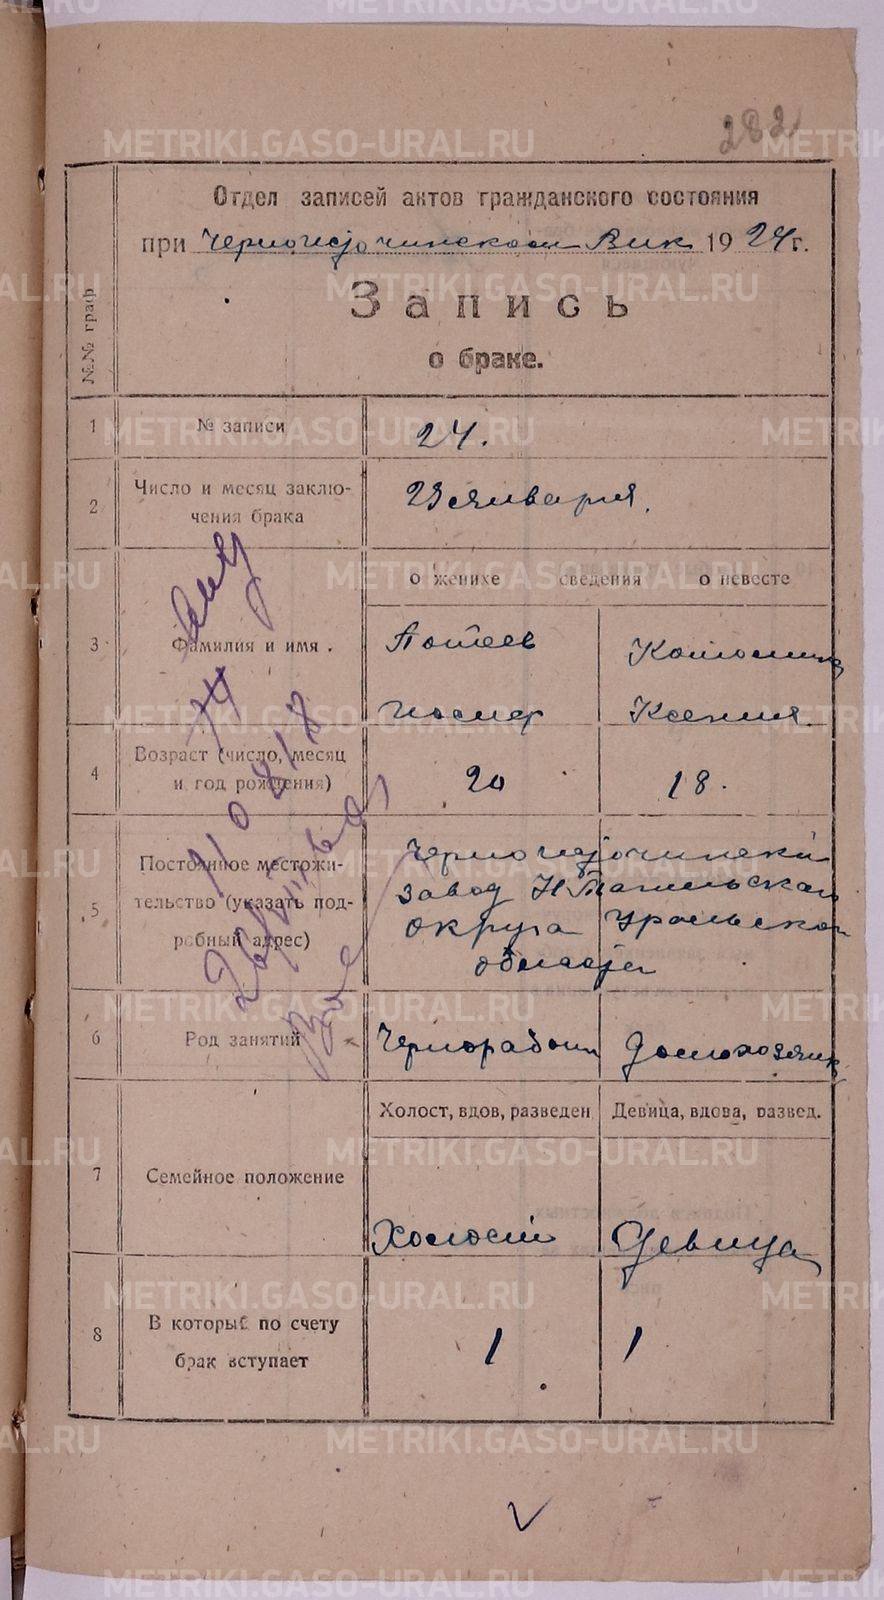 282
Отдел записей актов гражданского состояния
при Черноисточинском Вик 1924 г.
Запись
о браке.
№№ граф
1 № записи 24.
2 Число и месяц заключения брака января.
о женихе сведения о невесте
3 Фамилия и имя.
Потеев
Ксения
4 Возраст (число, месяц
и год рождения) 20 18.
5 Постоянное местожи-
тельство (указать под-
робный адрес)
Черноисточинский
завод Н Тагильскаго
округа Уральской
области
6 Род занятий Чернорабочи Домохозяйк
Холост, вдов, разведен Девица, вдова, развед.
7 Семейное положение Холост Девица
8 В который по счету
брак вступает 1 1
METRIKI.GASO-URAL.RU